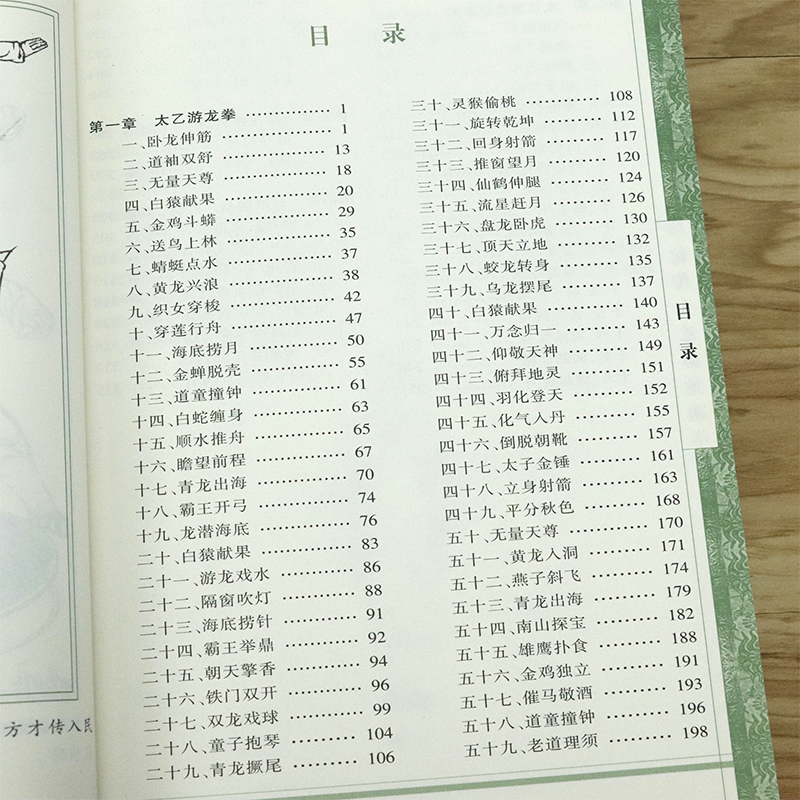 目 录
第一章 太乙游龙拳 ………… 1
一、卧龙伸筋 ………… 1
二、道袖双舒 ………… 13
三、无量天尊 ………… 18
四、白猿献果 ………… 20
五、金鸡斗蟒 ………… 29
六、送鸟上林 ………… 35
七、蜻蜓点水 ………… 37
八、黄龙兴浪 ………… 38
九、织女穿梭 ………… 42
十、穿莲行舟 ………… 47
十一、海底捞月 ………… 50
十二、金蝉脱壳 ………… 55
十三、道童撞钟 ………… 61
十四、白蛇缠身 ………… 63
十五、顺水推舟 ………… 65
十六、瞻望前程 ………… 67
十七、青龙出海 ………… 70
十八、霸王开弓 ………… 74
十九、龙潜海底 ………… 76
二十、白猿献果 ………… 83
二十一、游龙戏水 ………… 86
二十二、隔窗吹灯 ………… 88
二十三、海底捞针 ………… 91
二十四、霸王举鼎 ………… 92
二十五、朝天擎香 ………… 94
二十六、铁门双开 ………… 96
二十七、双龙戏球 ………… 99
二十八、童子抱琴 ………… 104
二十九、青龙撅尾 ………… 106
三十、灵猴偷桃 ………… 108
三十一、旋转乾坤 ………… 112
三十二、回身射箭 ………… 117
三十三、推窗望月 ………… 120
三十四、仙鹤伸腿 ………… 124
三十五、流星赶月 ………… 126
三十六、盘龙卧虎 ………… 130
三十七、顶天立地 ………… 132
三十八、蛟龙转身 ………… 135
三十九、乌龙摆尾 ………… 137
四十、白猿献果 ………… 140
四十一、万念归一 ………… 143
四十二、仰敬天神 ………… 149
四十三、俯拜地灵 ………… 151
四十四、羽化登天 ………… 152
四十五、化气入丹 ………… 155
四十六、倒脱朝靴 ………… 157
四十七、太子金锤 ………… 161
四十八、立身射箭 ………… 163
四十九、平分秋色 ………… 168
五十、无量天尊 ………… 170
五十一、黄龙入洞 ………… 171
五十二、燕子斜飞 ………… 174
五十三、青龙出海 ………… 179
五十四、南山探宝 ………… 182
五十五、雄鹰扑食 ………… 188
五十六、金鸡独立 ………… 191
五十七、催马敬酒 ………… 193
五十八、道童撞钟 ………… 196
五十九、老道理须 ………… 198
目录
方才传入民